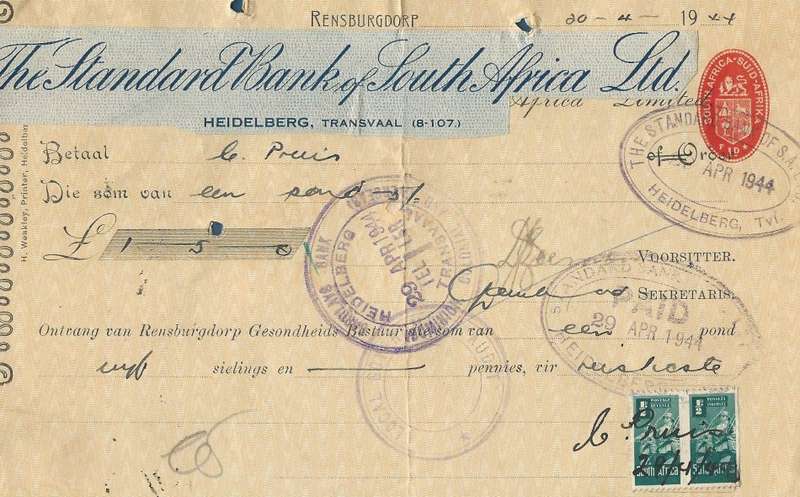 RENSBURGDORP 20-4- 1944
The Standard Bank of South Africa Ltd.
Africa Limited
HEIDELBERG, TRANSVAAL (8-107.)
SOUTH AFRICA·SUID-AFRIKA
1D
Betaal C. Pruis of Order
Die som van een pond 5/-
THE STANDARD BANK OF S.A.
APR 1944
HEIDELBERG, Tvl.
£ 1 5 0
H. Weakley, Printer, Heidelberg
HEIDELBERG
TRANSVAAL
29 APR 1944
VOORSITTER.
SEKRETARIS.
STANDARD BANK
PAID
29 APR 1944
HEIDELBERG
Ontvang van Rensburgdorp Gesondheids Bestuur die som van een pond
vyf sielings en pennies, vir
LOCAL
POSTAGE REVENUE
½D ½D
South Africa Suid-Afrika
C. Pruis
29/4/